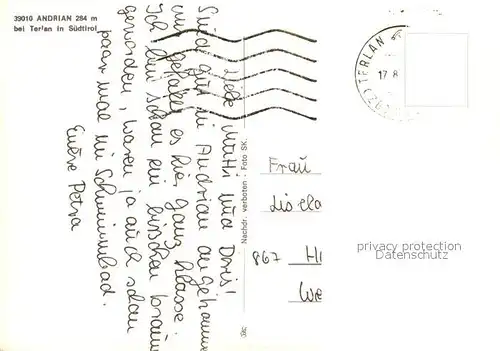 39010 ANDRIAN 284 m
bei Terlan in Südtirol
Liebe Mutti und Doris!
Sind gut in Andrian angekommen
und gefällt es hier ganz klasse.
Ich bin schon ein bisschen braun
geworden, waren ja auch schon
paar mal im Schwimmbad.
Eure Petra
Nachdr. verboten · Foto SK.
TERLAN
17.8
Frau
867
privacy protection
Datenschutz